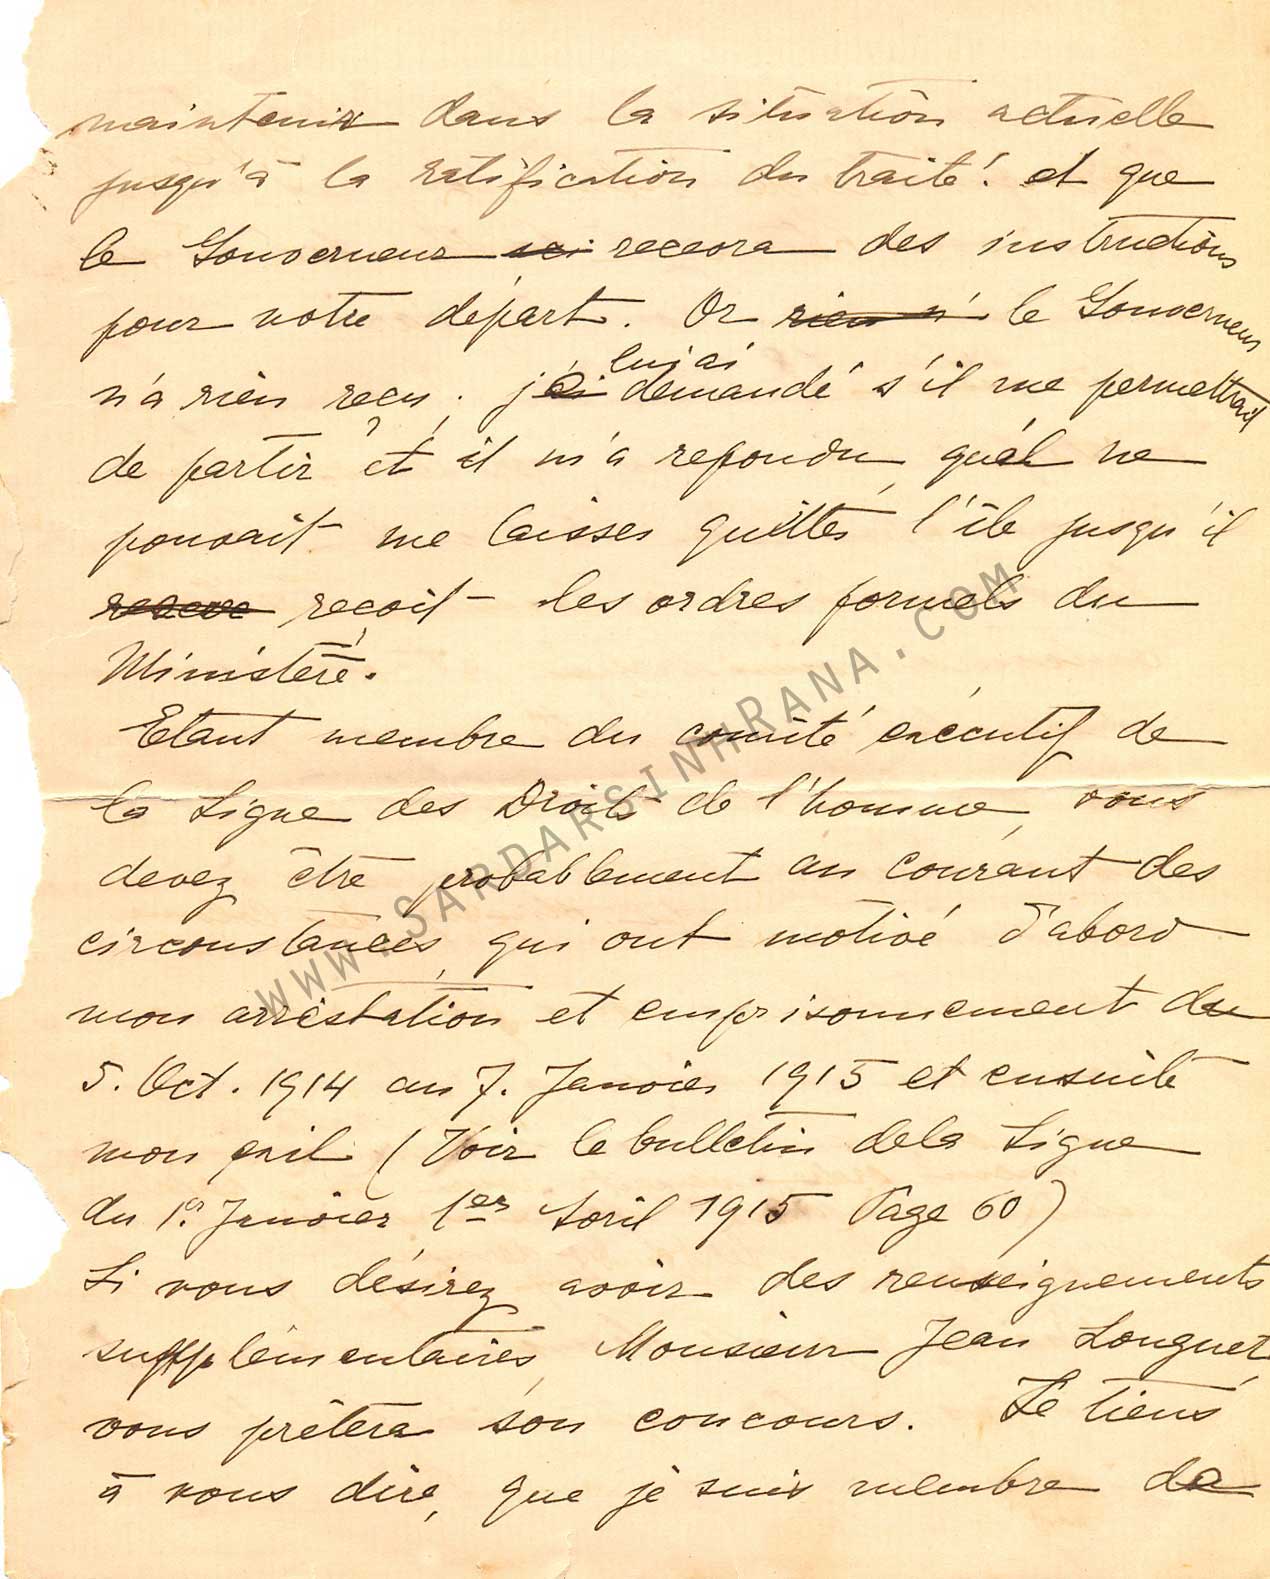 maintenir dans la situation actuelle
jusqu'à la ratification du traité. et que
le Gouverneur recevra des instructions
pour votre départ. Or rien n' le Gouverneur
n'a rien reçu. j'ai lui ai demandé s'il me permettrait
de partir et il m'a repondu qu'il ne
pouvait me laisser quitter l'île jusqu'il
receve reçoit les ordres formels du
Ministère.
Etant membre du comité exécutif de
la Ligue des Droits de l'homme, vous
devez être probablement au courant des
circonstances, qui ont motivé d'abord
mon arrestation et emprisonnement du
5. Oct. 1914 au 7. Janvier 1915 et ensuite
mon exil (Voir le bulletin dela Ligue
du 1er Janvier 1er Avril 1915 Page 60)
Si vous désirez avoir des renseignements
supplémentaires, Monsieur Jean Longuet
vous prêtera son concours. Je tiens
à vous dire, que je suis membre de
WWW.SARDARSINHRANA.COM